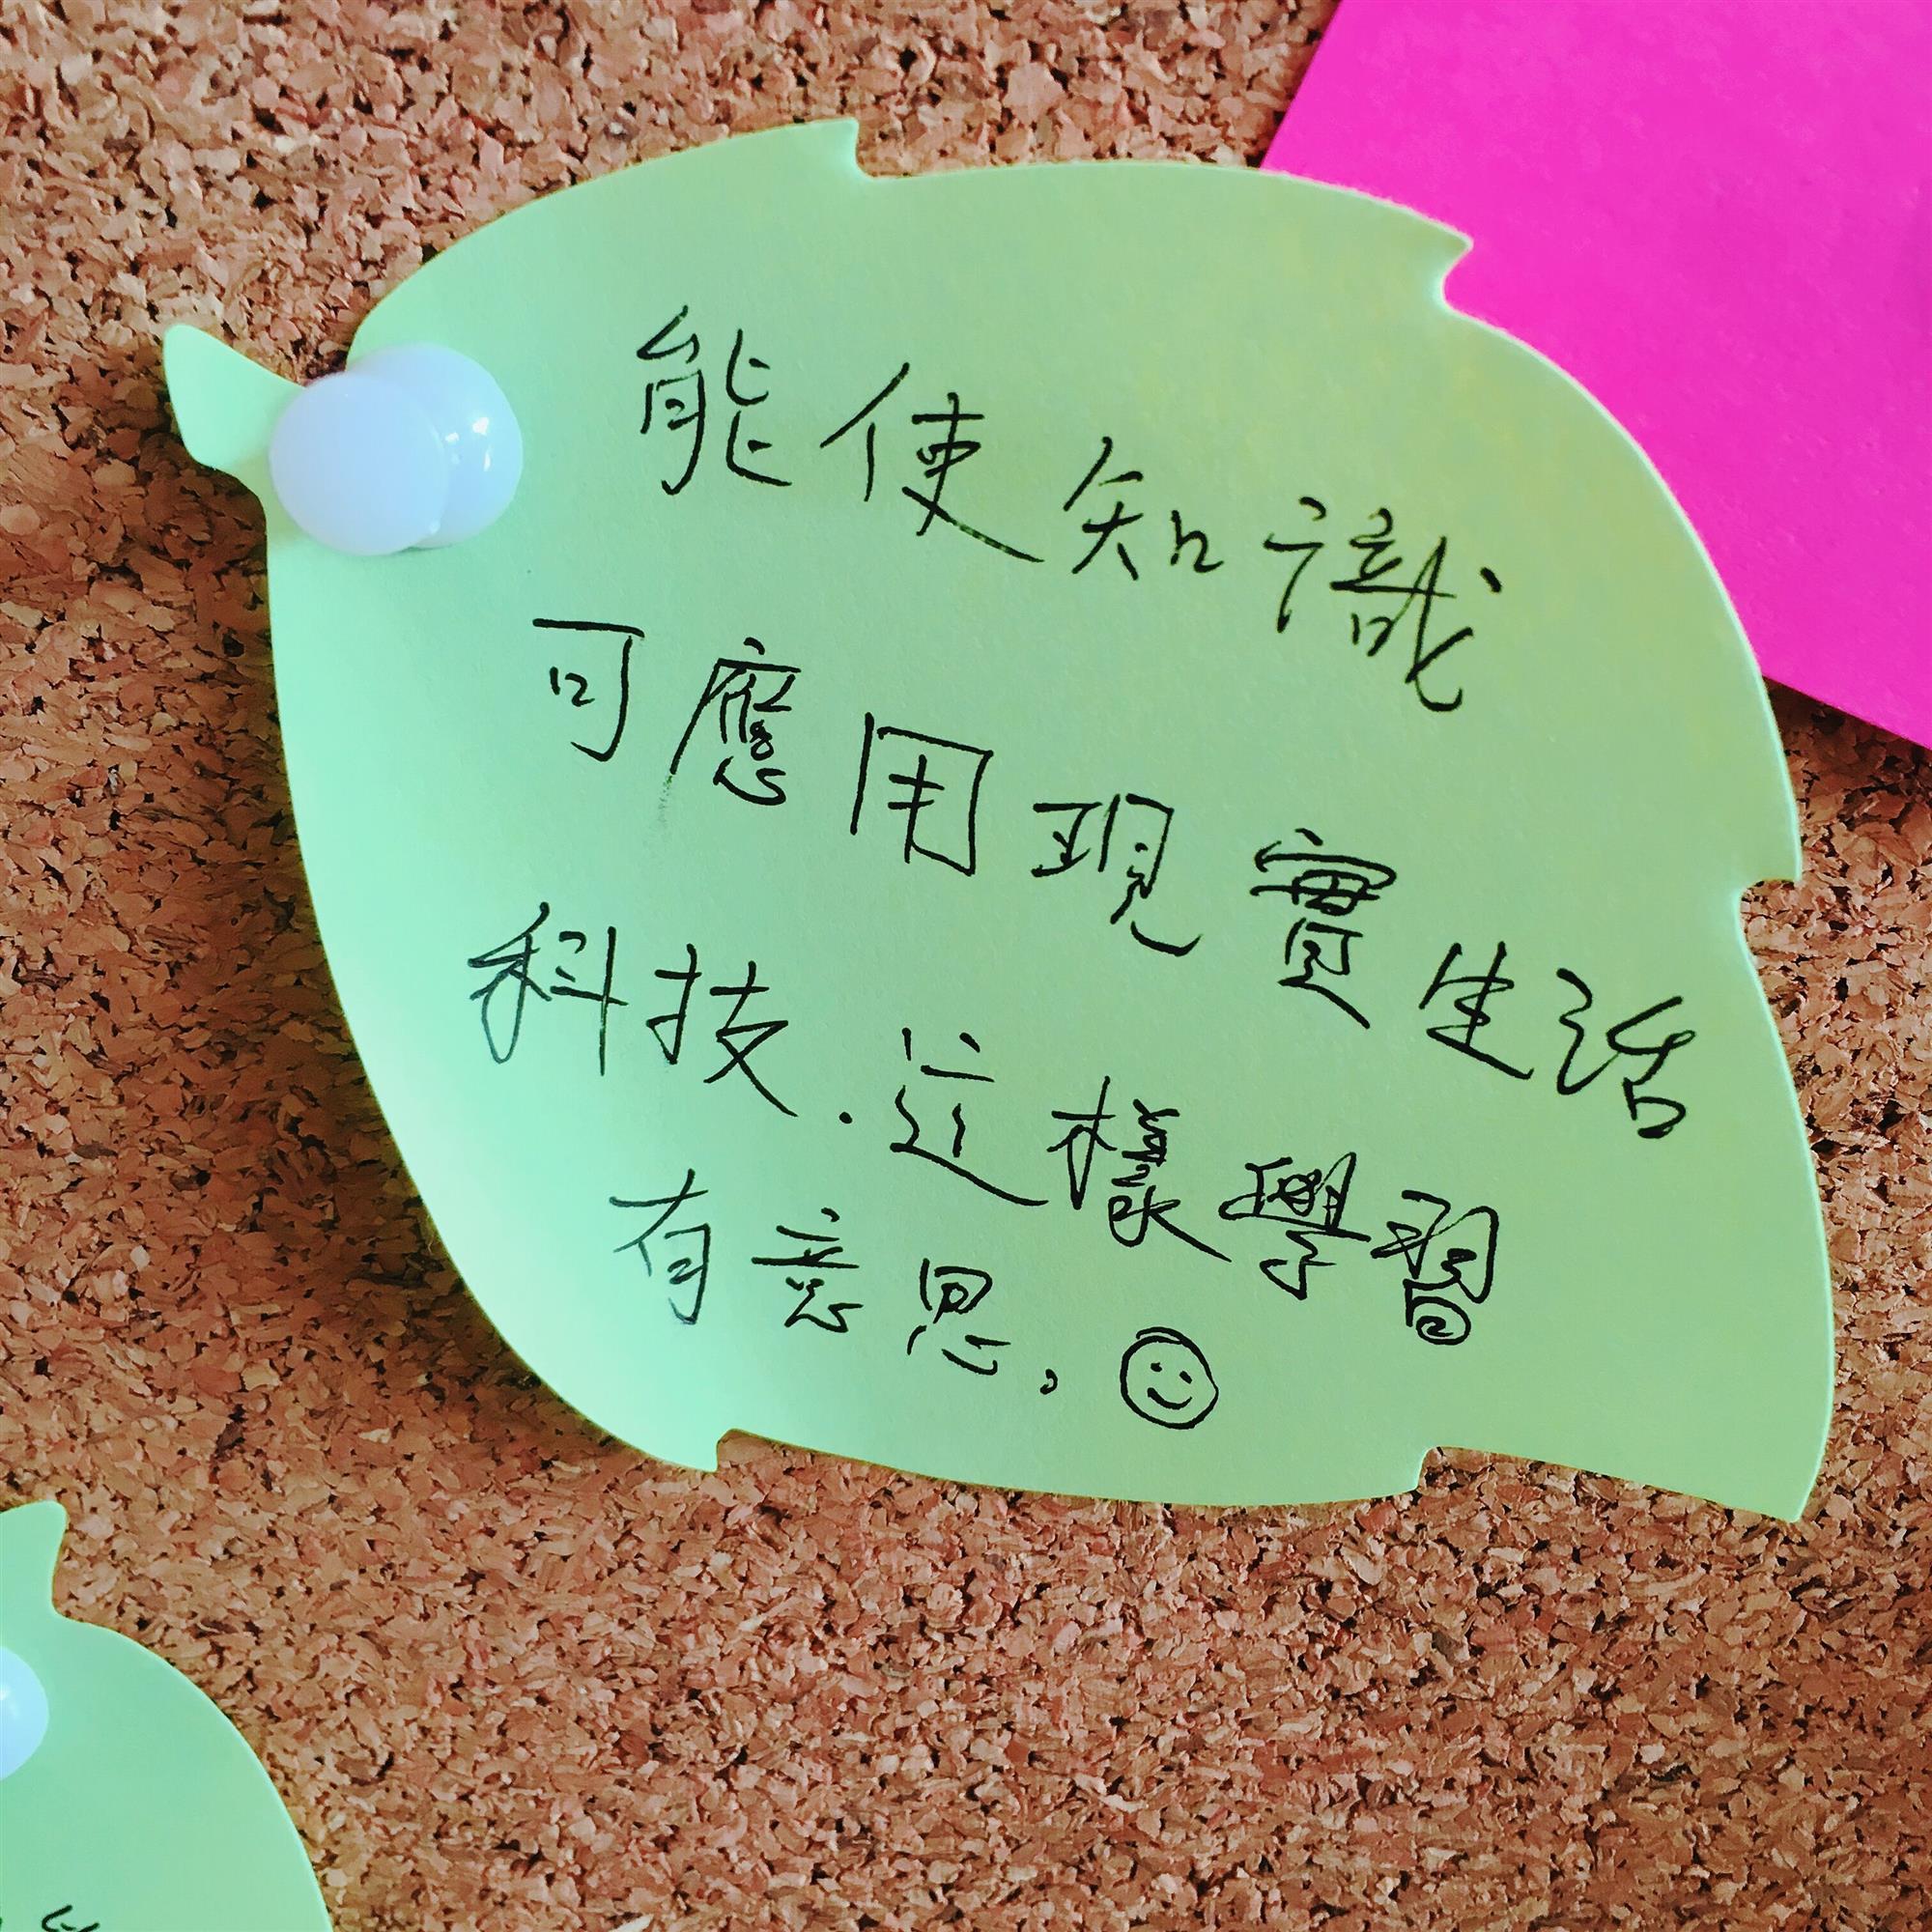 能使知識
可應用現實生活
科技.這樣學習
有意思,